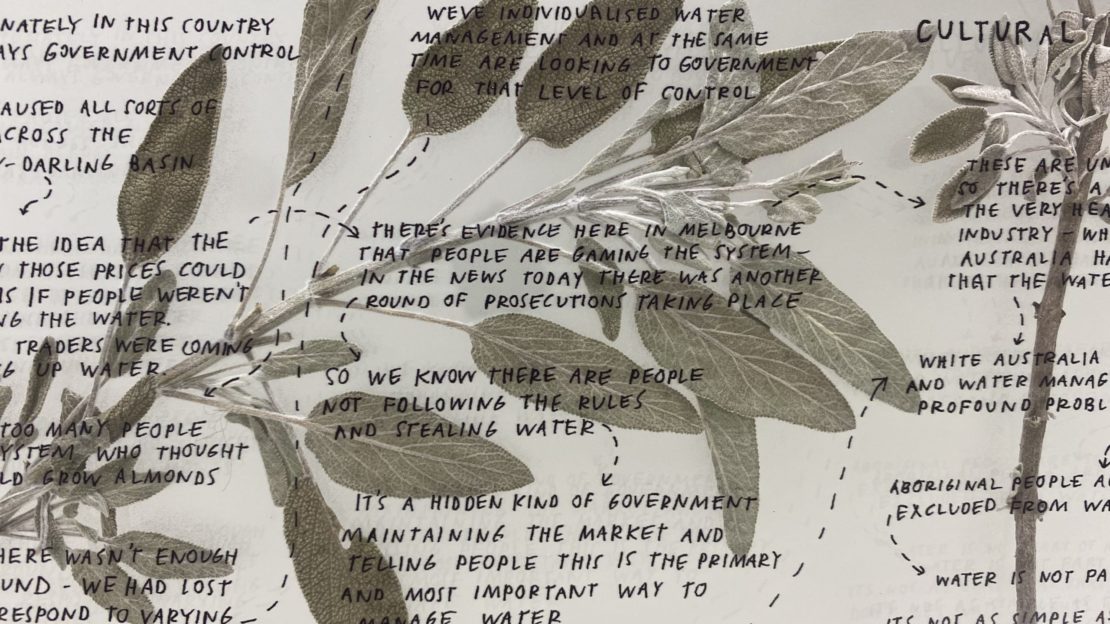 NATELY IN THIS COUNTRY
AYS GOVERNMENT CONTROL
AUSED ALL SORTS OF
ACROSS THE
Y-DARLING BASIN
THE IDEA THAT THE
THOSE PRICES COULD
IS IF PEOPLE WEREN'T
NG THE WATER.
TRADERS WERE COMING
G UP WATER.
TOO MANY PEOPLE
YSTEM WHO THOUGHT
LD GROW ALMONDS
HERE WASN'T ENOUGH
UND - WE HAD LOST
RESPOND TO VARYING
WEVE INDIVIDUALISED WATER
MANAGEMENT AND AT THE SAME
TIME ARE LOOKING TO GOVERNMENT
FOR THAT LEVEL OF CONTROL
THERE'S EVIDENCE HERE IN MELBOURNE
THAT PEOPLE ARE GAMING THE SYSTEM -
IN THE NEWS TODAY THERE WAS ANOTHER
ROUND OF PROSECUTIONS TAKING PLACE
SO WE KNOW THERE ARE PEOPLE
NOT FOLLOWING THE RULES
AND STEALING WATER
IT'S A HIDDEN KIND OF GOVERNMENT
MAINTAINING THE MARKET AND
TELLING PEOPLE THIS IS THE PRIMARY
AND MOST IMPORTANT WAY TO
MANAGE WATER
CULTURAL
THESE ARE UN
SO THERE'S A
THE VERY HEA
INDUSTRY - WH
AUSTRALIA HA
THAT THE WATE
WHITE AUSTRALIA
AND WATER MANAG
PROFOUND PROBL
ABORIGINAL PEOPLE A
EXCLUDED FROM WA
WATER IS NOT PA
IT'S NOT AS SIMPLE AS